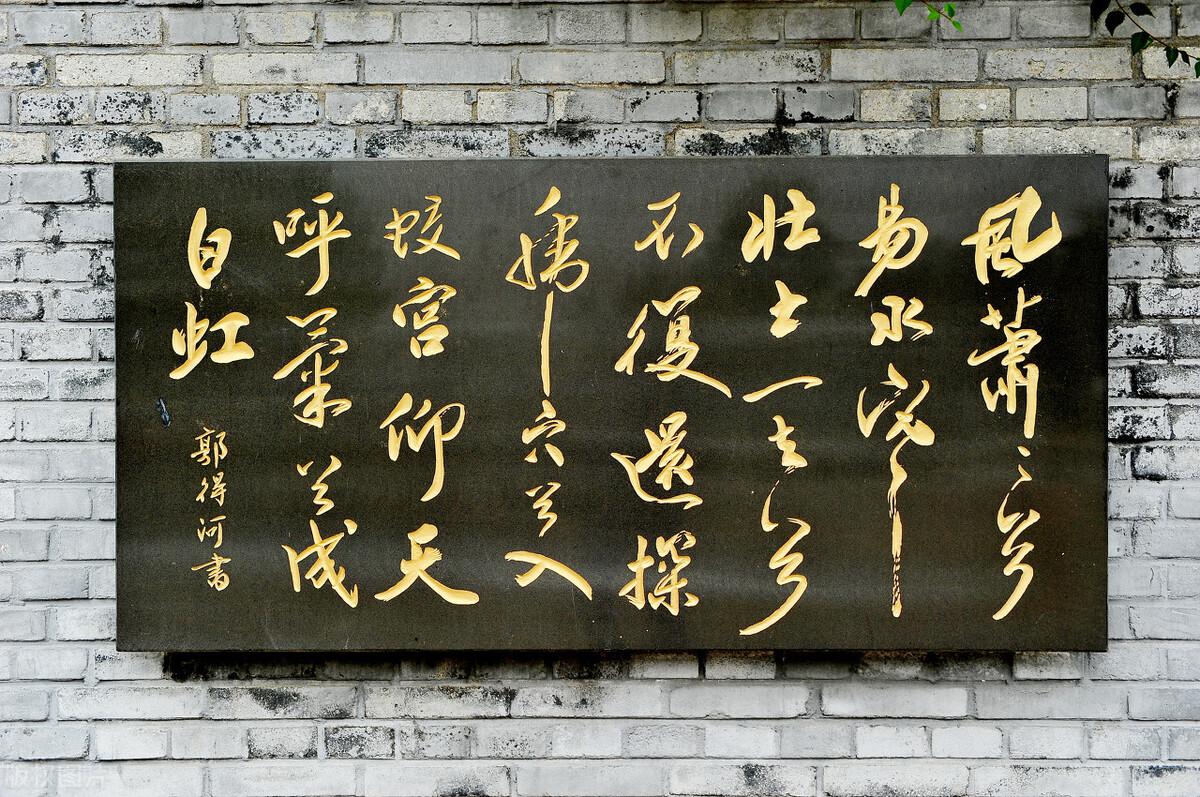 風蕭〻兮
易水寒
壯士一去兮
不復還探
虎穴兮入
蛟宮仰天
呼氣兮成
白虹
郭得河書